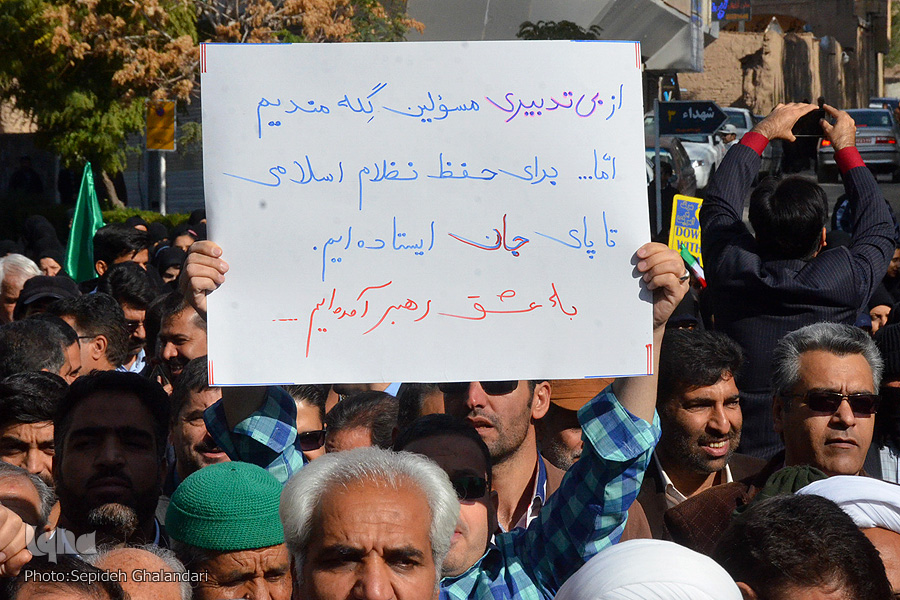 از بی تدبیری مسؤلین گِله مندیم
امّا... برای حفظ نظام اسلامی
تا پای جان ایستاده ایم.
با عشق رهبر آمده ایم ...
شهداء ۳
DOW
WITH
iqna
Photo:Sepideh Ghalandari